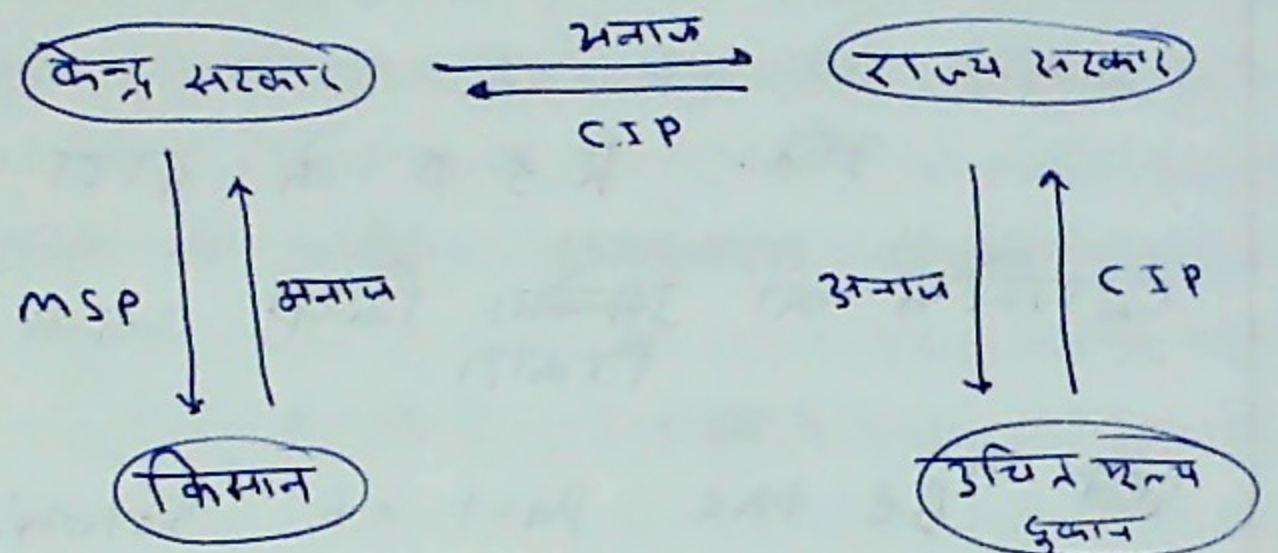 केन्द्र सरकार
अनाज
राज्य सरकार
CIP
MSP
अनाज
अनाज
CIP
किसान
उचित मूल्य
दुकान